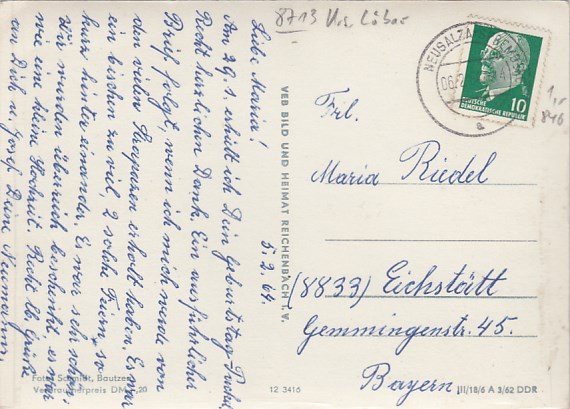 8713 Krs. Löbau
5.2.64.
Liebe Maria!
Am 29.1. erhielt ich Dein Geburtstags-Päckch.
Recht herzlichen Dank. Ein ausführlicher
Brief folgt, wenn ich mich wieder von
den vielen Strapazen erholt habe. Es war
ein bischen zu viel, 2 solche Feiern so
kurz hintereinander. Es war sehr schön.
Wir wurden überreich beschenkt, es war
wie eine kleine Hochzeit. Recht lb. Grüße
an Dich u. Josef, Deine Neumann.
Foto: Schmidt, Bautzen
Verbraucherpreis DM 0,20
VEB BILD UND HEIMAT REICHENBACH I. V.
12 3416
NEUSALZA-
06.2
a
DEUTSCHE
DEMOKRATISCHE REPUBLIK
10
1,-
846
Frl.
Maria Riedel
(8833) Eichstätt
Gemmingenstr. 45.
Bayern
III/18/6 A 3/62 DDR